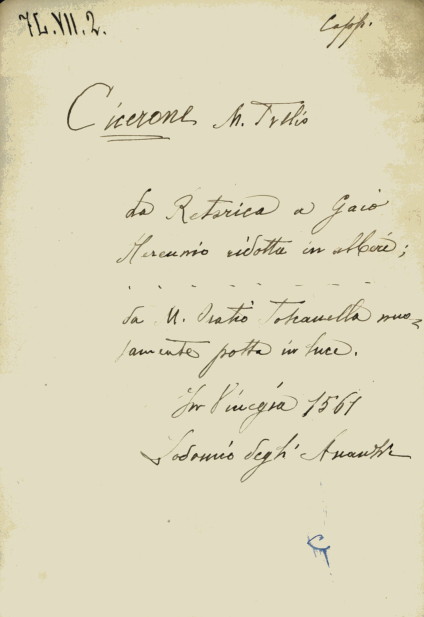 7L.VII.2.
Capp.
Cicerone M. Tullio
La Retorica a Gaio
Herennio ridotta in alberi;
. . . . . - - - -
da M. Oratio Toscanella nuo=
vamente posta in luce.
In Vinegia 1561
Lodovico degli Avanzi